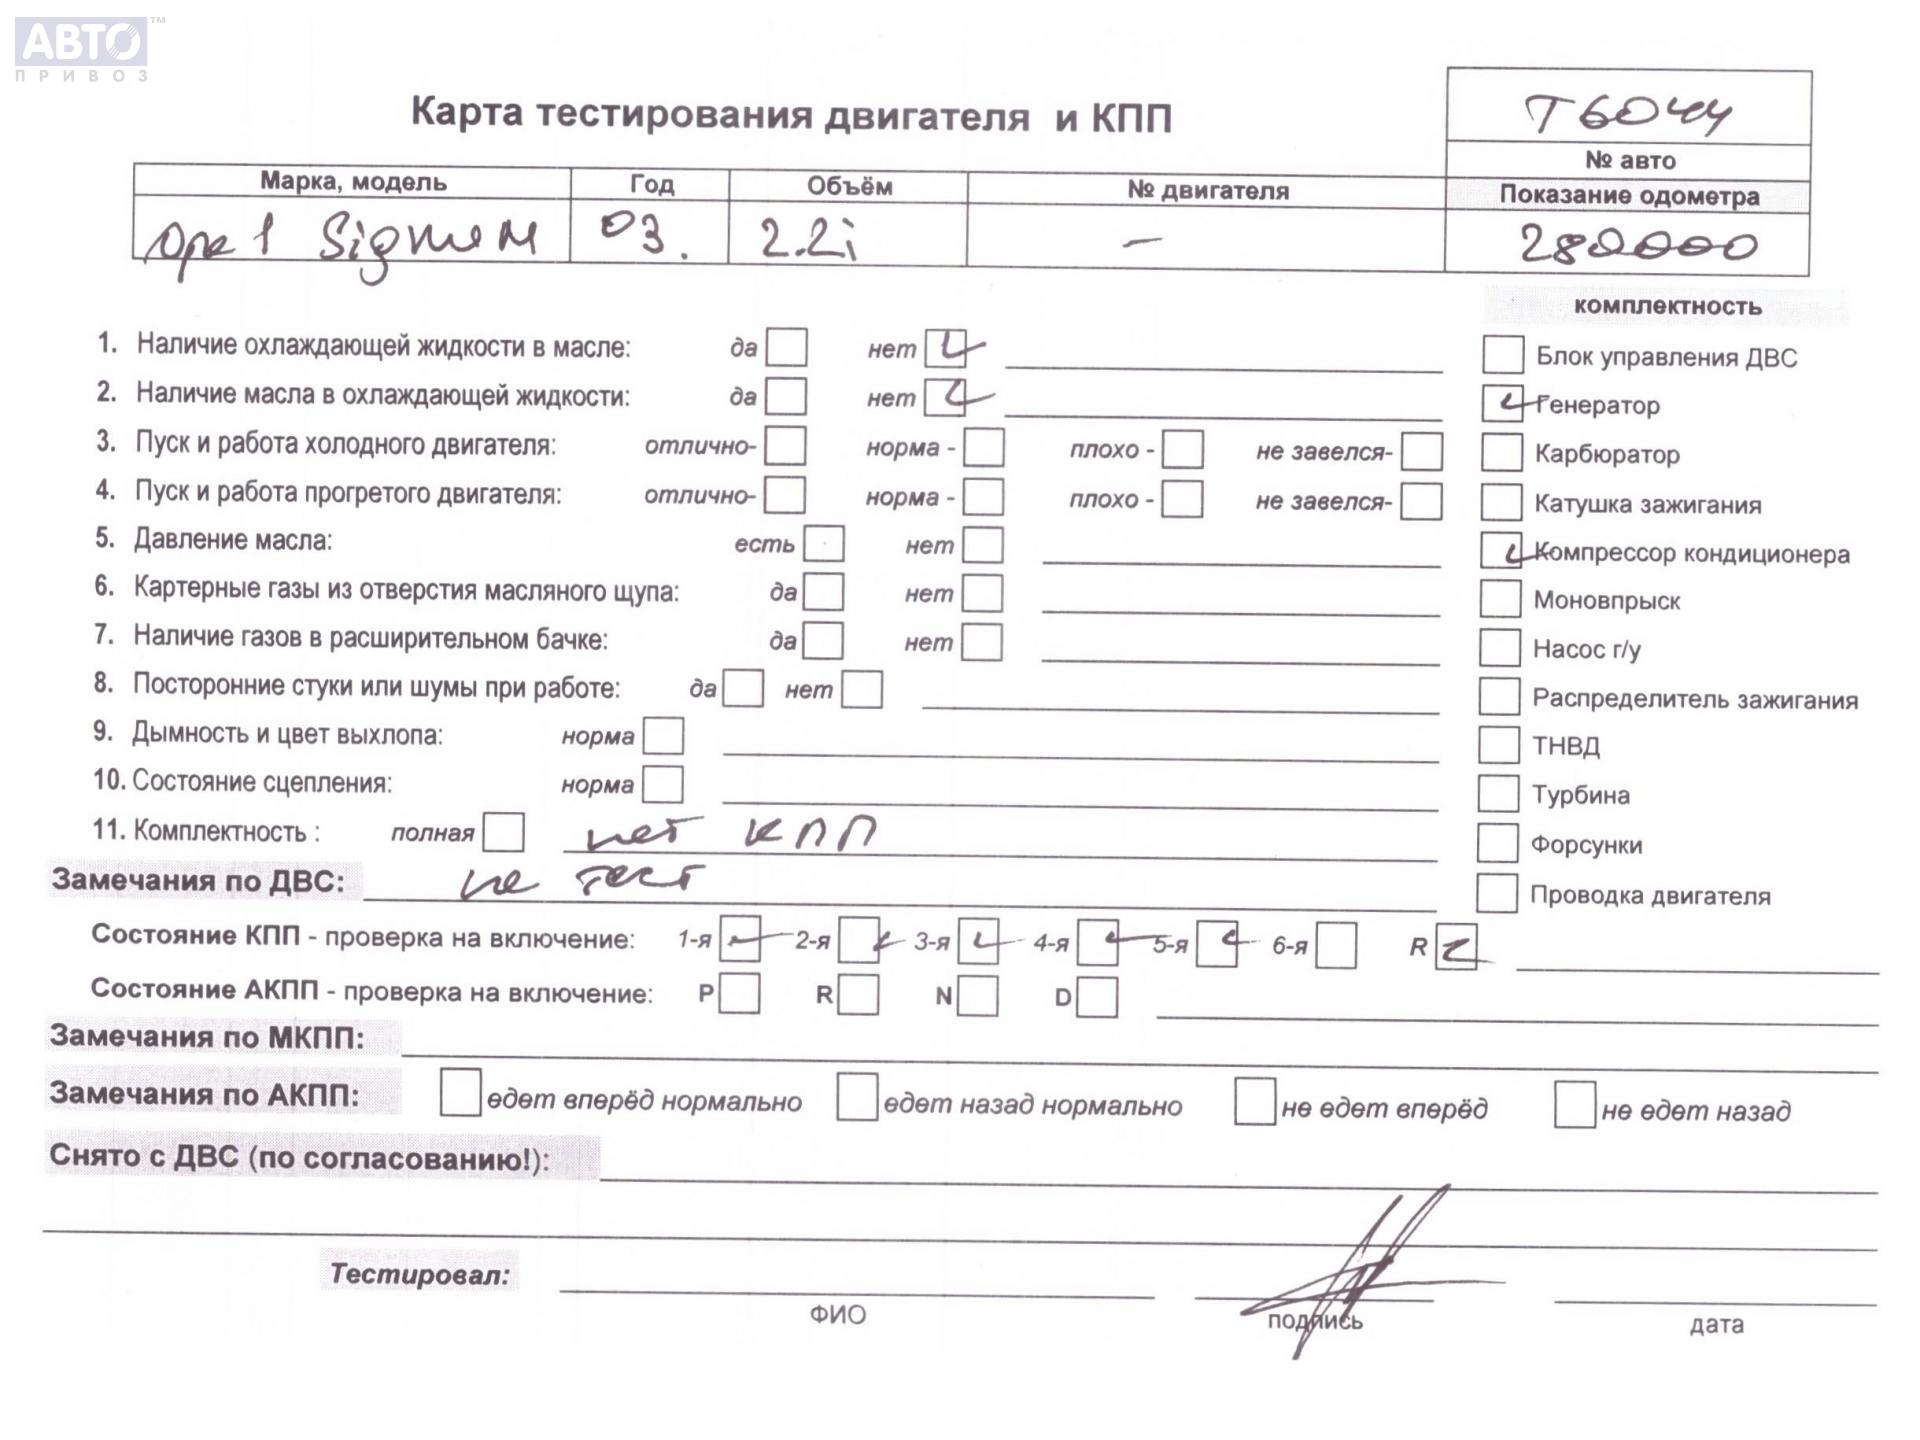 АВТО™
ПРИВОЗ
Карта тестирования двигателя и КПП
Т6044
№ авто
Марка, модель Год Объём № двигателя Показание одометра
Opel Signum 03. 2.2i – 280000
комплектность
1. Наличие охлаждающей жидкости в масле: да нет
Блок управления ДВС
2. Наличие масла в охлаждающей жидкости: да нет
Генератор
3. Пуск и работа холодного двигателя: отлично- норма - плохо - не завелся-
Карбюратор
4. Пуск и работа прогретого двигателя: отлично- норма - плохо - не завелся-
Катушка зажигания
5. Давление масла: есть нет
Компрессор кондиционера
6. Картерные газы из отверстия масляного щупа: да нет
Моновпрыск
7. Наличие газов в расширительном бачке: да нет
Насос г/у
8. Посторонние стуки или шумы при работе: да нет
Распределитель зажигания
9. Дымность и цвет выхлопа: норма
ТНВД
10. Состояние сцепления: норма
Турбина
11. Комплектность : полная нет КПП
Форсунки
Замечания по ДВС: не тест
Проводка двигателя
Состояние КПП - проверка на включение: 1-я 2-я 3-я 4-я 5-я 6-я R
Состояние АКПП - проверка на включение: P R N D
Замечания по МКПП:
Замечания по АКПП: едет вперёд нормально едет назад нормально не едет вперёд не едет назад
Снято с ДВС (по согласованию!):
Тестировал:
ФИО подпись дата